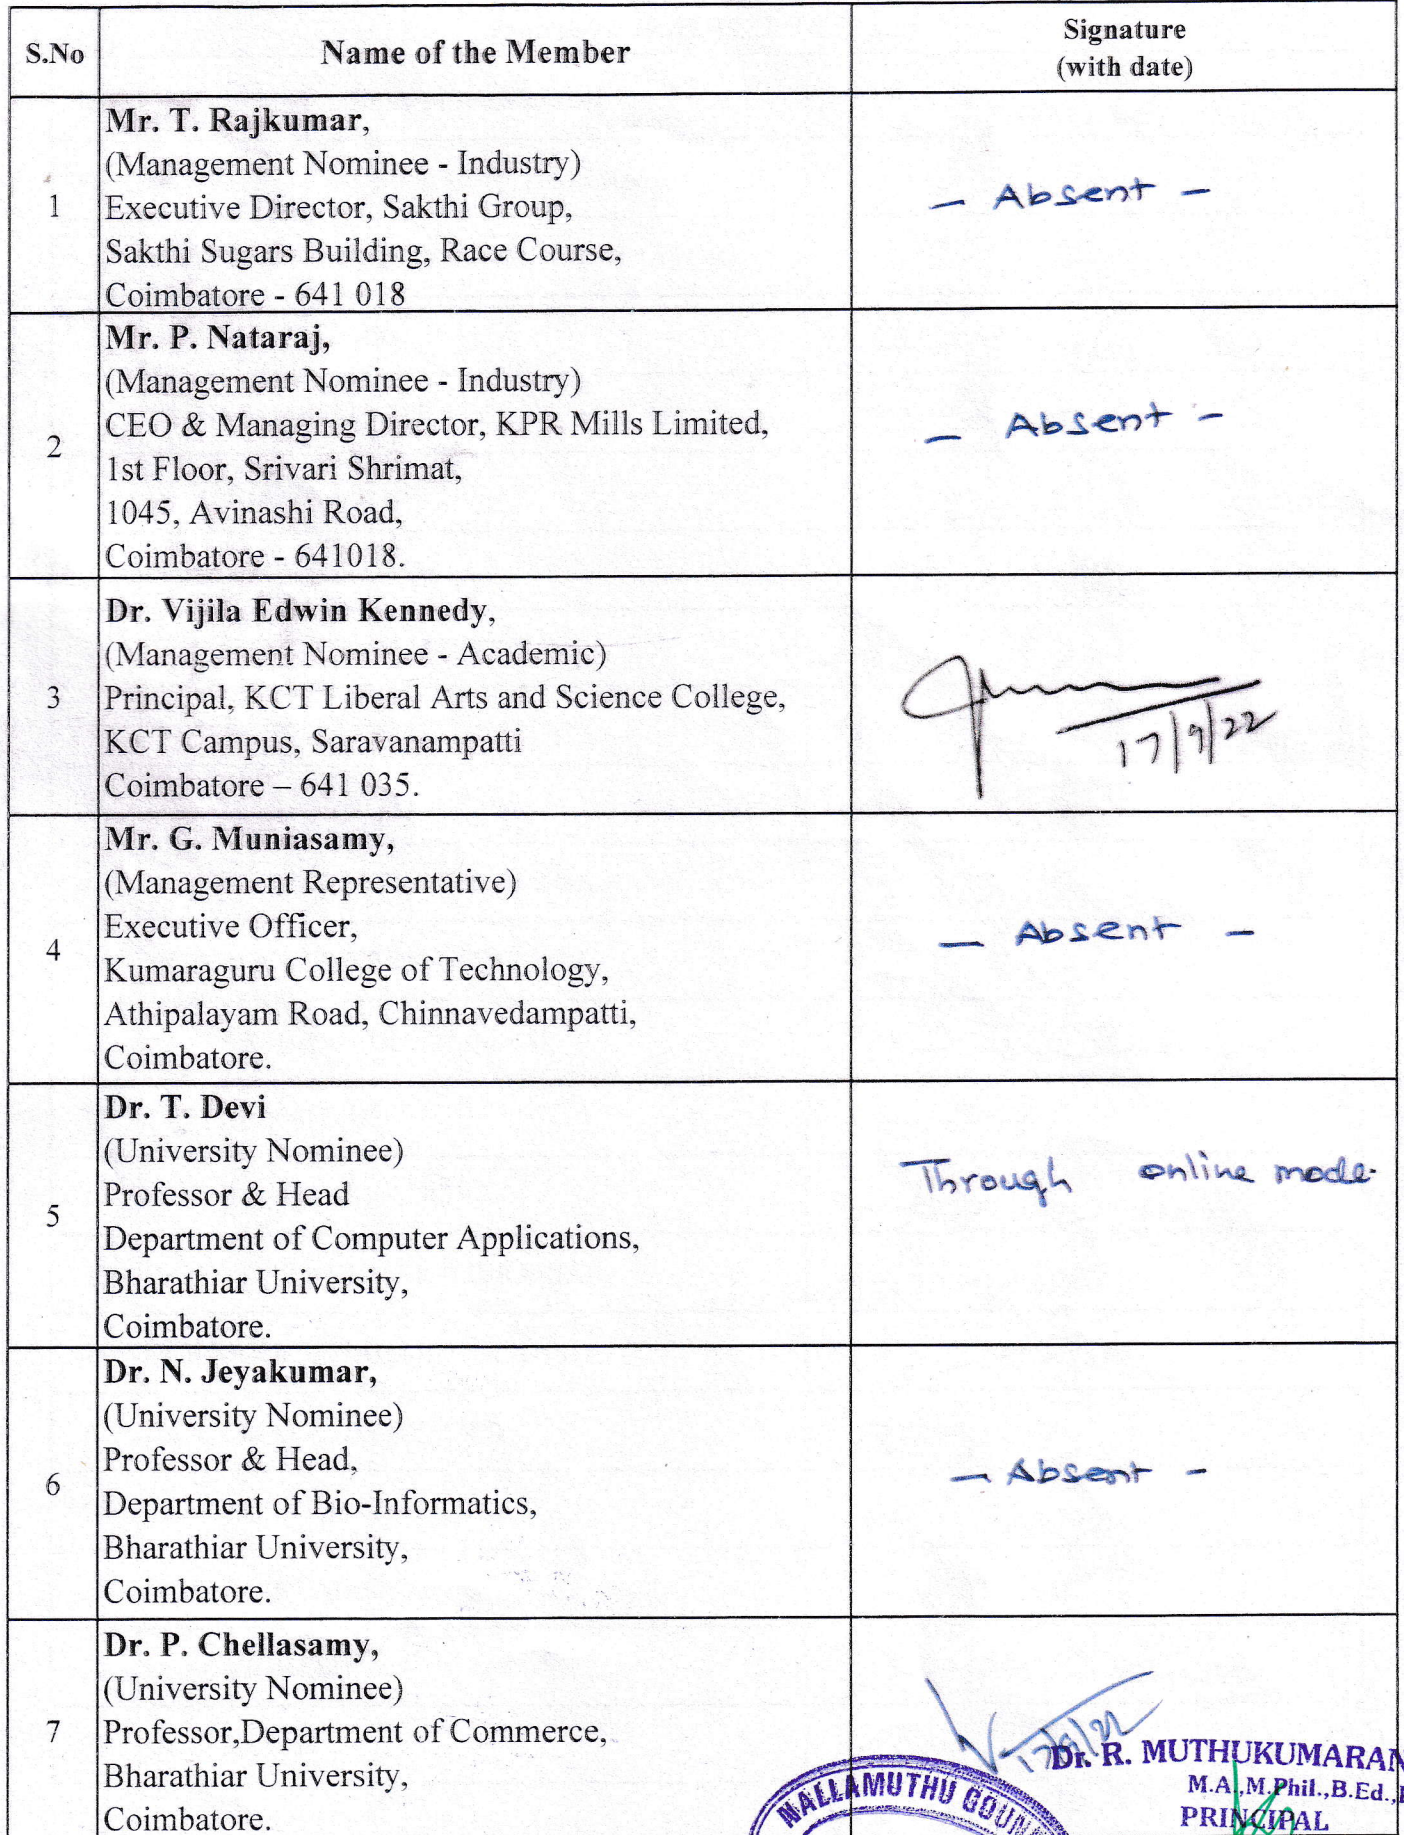 S.No Name of the Member Signature
(with date)
1 Mr. T. Rajkumar,
(Management Nominee - Industry)
Executive Director, Sakthi Group,
Sakthi Sugars Building, Race Course,
Coimbatore - 641 018
- Absent -
2 Mr. P. Nataraj,
(Management Nominee - Industry)
CEO & Managing Director, KPR Mills Limited,
1st Floor, Srivari Shrimat,
1045, Avinashi Road,
Coimbatore - 641018.
- Absent -
3 Dr. Vijila Edwin Kennedy,
(Management Nominee - Academic)
Principal, KCT Liberal Arts and Science College,
KCT Campus, Saravanampatti
Coimbatore – 641 035.
17/9/22
4 Mr. G. Muniasamy,
(Management Representative)
Executive Officer,
Kumaraguru College of Technology,
Athipalayam Road, Chinnavedampatti,
Coimbatore.
- Absent -
5 Dr. T. Devi
(University Nominee)
Professor & Head
Department of Computer Applications,
Bharathiar University,
Coimbatore.
Through online mode.
6 Dr. N. Jeyakumar,
(University Nominee)
Professor & Head,
Department of Bio-Informatics,
Bharathiar University,
Coimbatore.
- Absent -
7 Dr. P. Chellasamy,
(University Nominee)
Professor,Department of Commerce,
Bharathiar University,
Coimbatore.
Dr. R. MUTHUKUMARAN
M.A.,M.Phil.,B.Ed.,
PRINCIPAL
NALLAMUTHU